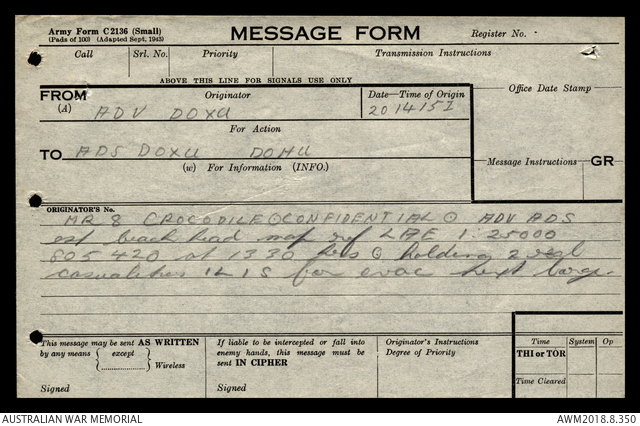 Army Form C2136 (Small)
(Pads of 100) (Adapted Sept. 1943)
MESSAGE FORM
Register No.
Call Srl. No. Priority Transmission Instructions
ABOVE THIS LINE FOR SIGNALS USE ONLY
FROM (A)
Originator
Date—Time of Origin
Office Date Stamp
ADV DOXU
201415I
For Action
TO
ADS DOXU DOHU
(w) For Information (INFO.)
Message Instructions GR
ORIGINATOR'S No.
MR 8 CROCODILE ⊙ CONFIDENTIAL ⊙ ADV ADS
est beach head map ref LAE 1:25000
805420 at 1330 hrs ⊙ holding 2
casualties 1L 1S for evac next barge.
This message may be sent AS WRITTEN
by any means { except } Wireless
Signed
If liable to be intercepted or fall into
enemy hands, this message must be
sent IN CIPHER
Signed
Originator's Instructions
Degree of Priority
Time System Op
THI or TOR
Time Cleared
AUSTRALIAN WAR MEMORIAL
AWM2018.8.350